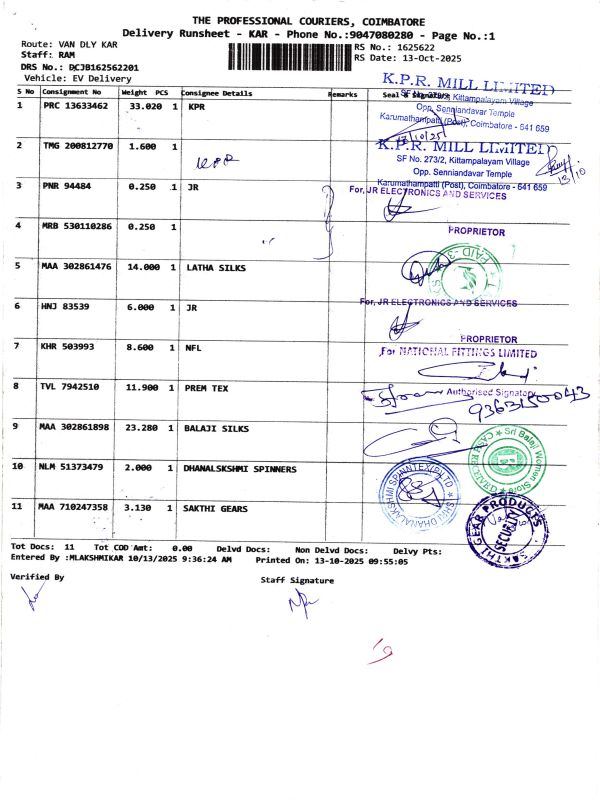 THE PROFESSIONAL COURIERS, COIMBATORE
Delivery Runsheet - KAR - Phone No.:9047080280 - Page No.:1
Route: VAN DLY KAR
RS No.: 1625622
Staff: RAM
RS Date: 13-Oct-2025
DRS No.: DCJB162562201
Vehicle: EV Delivery
S No Consignment No Weight PCS Consignee Details Remarks Seal & Signature
1 PRC 13633462 33.020 1 KPR
K.P.R. MILL LIMITED
SF No. 273/2, Kittampalayam Village
Opp. Senniandavar Temple
Karumathampatti (Post), Coimbatore - 641 659
13/10/25
2 TMG 200812770 1.600 1
KPR
K.P.R. MILL LIMITED
SF No. 273/2, Kittampalayam Village
Opp. Senniandavar Temple
Karumathampatti (Post), Coimbatore - 641 659
13/10
3 PNR 94484 0.250 1 JR
For, JR ELECTRONICS AND SERVICES
PROPRIETOR
4 MRB 530110286 0.250 1
5 MAA 302861476 14.000 1 LATHA SILKS
PAID
6 HNJ 83539 6.000 1 JR
For, JR ELECTRONICS AND SERVICES
PROPRIETOR
7 KHR 503993 8.600 1 NFL
For NATIONAL FITTINGS LIMITED
Authorised Signatory
8 TVL 7942510 11.900 1 PREM TEX
9363150043
9 MAA 302861898 23.280 1 BALAJI SILKS
Sri Balaji Women Store
CASH RECEIVED
10 NLM 51373479 2.000 1 DHANALSKSHMI SPINNERS
SHRI DHANALAKSHMI SPINNTEX (P) LTD
11 MAA 710247358 3.130 1 SAKTHI GEARS
SAKTHI GEAR PRODUCTS
SECURITY
Tot Docs: 11 Tot COD Amt: 0.00 Delvd Docs: Non Delvd Docs: Delvy Pts:
Entered By :MLAKSHMIKAR 10/13/2025 9:36:24 AM Printed On: 13-10-2025 09:55:05
Verified By
Staff Signature